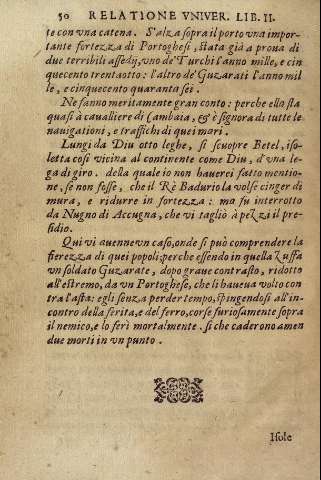 50 RELATIONE VNIVER. LIB. II.
te con vna catena. S'alza sopra il porto vna impor-
tante fortezza di Portoghesi, stata già a proua di
due terribili assedij, vno de' Turchi l'anno mille, e cin
quecento trentaotto: l'altro de' Guzarati l'anno mil
le, e cinquecento quaranta sei.
Ne fanno meritamente gran conto: perche ella sta
quasi à caualliere di Cambaia, & è signora di tutte le
nauigationi, e traffichi di quei mari.
Lungi da Diu otto leghe, si scuopre Betel, iso-
letta cosi vicina al continente come Diu, d'vna le-
ga di giro. della quale io non hauerei fatto mentio-
ne, se non fosse, che il Rè Badurio la volse cinger di
mura, e ridurre in fortezza: ma fu interrotto
da Nugno di Accugna, che vi tagliò a pezzi il pre-
sidio.
Qui vi auenne vn caso, onde si può comprendere la
fierezza di quei popoli: perche essendo in quella zuffa
vn soldato Guzarate, dopo graue contrasto, ridotto
all'estremo, da vn Portoghese, che li haueua volto con
tra l'asta: egli senza perder tempo, spingendosi all'in-
contro della ferita, e del ferro, corse furiosamente sopra
il nemico, e lo ferì mortalmente. si che caderono amen
due morti in vn punto.
Isole